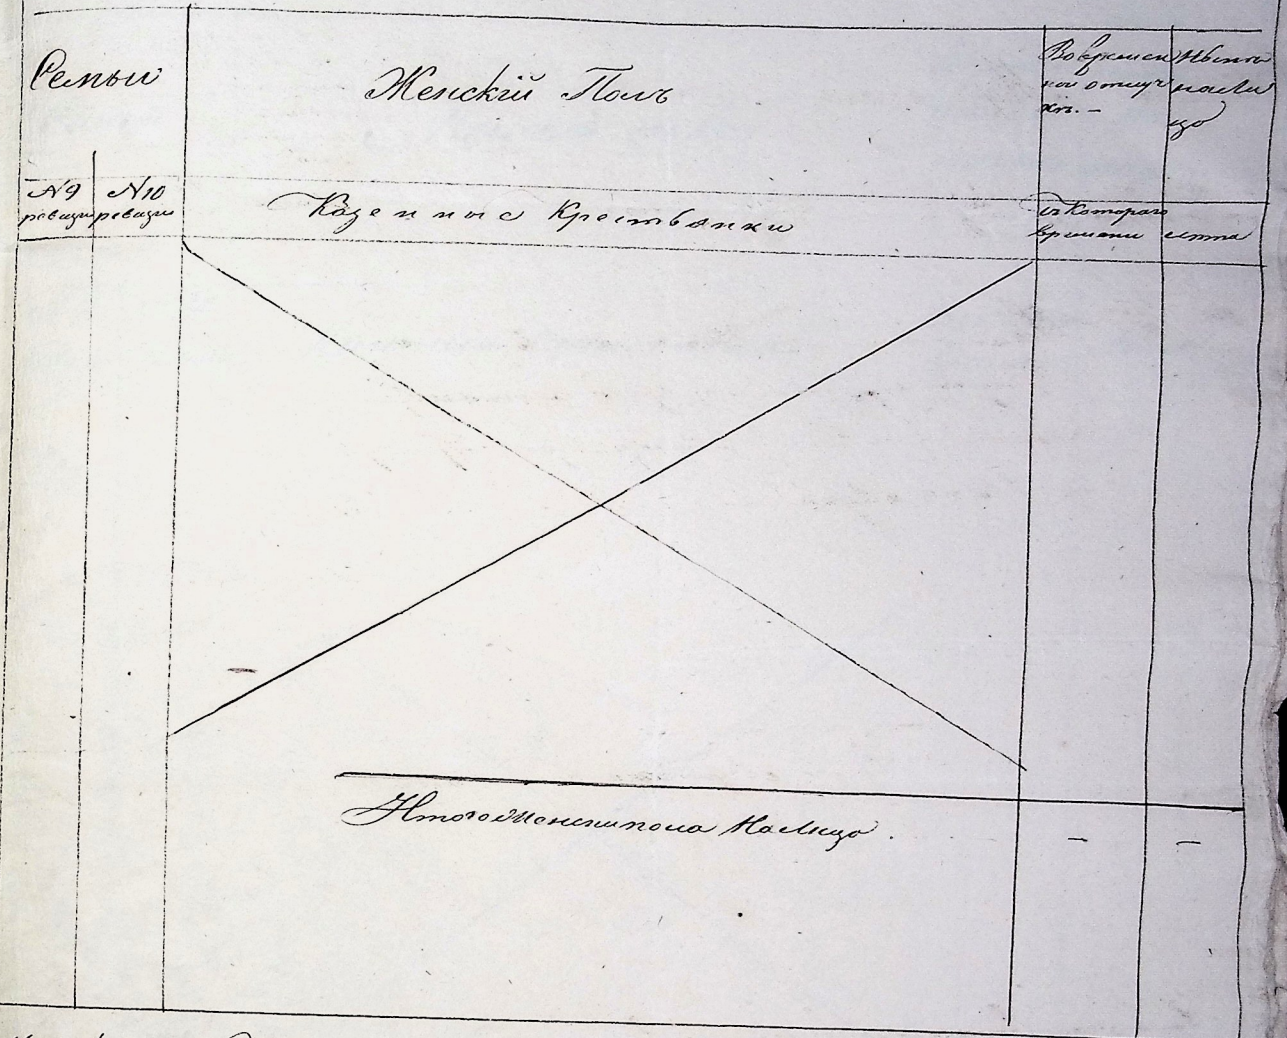 Семьи
Женскій Полъ
Во времен
ной отлуч
кѣ. —
Нынѣ
на Ли
цо
№9
ревизіи
№10
ревизіи
Казенные Крестьянки
съ Котораго
времени
лѣта
Итого Женска пола На Лицо.
— —